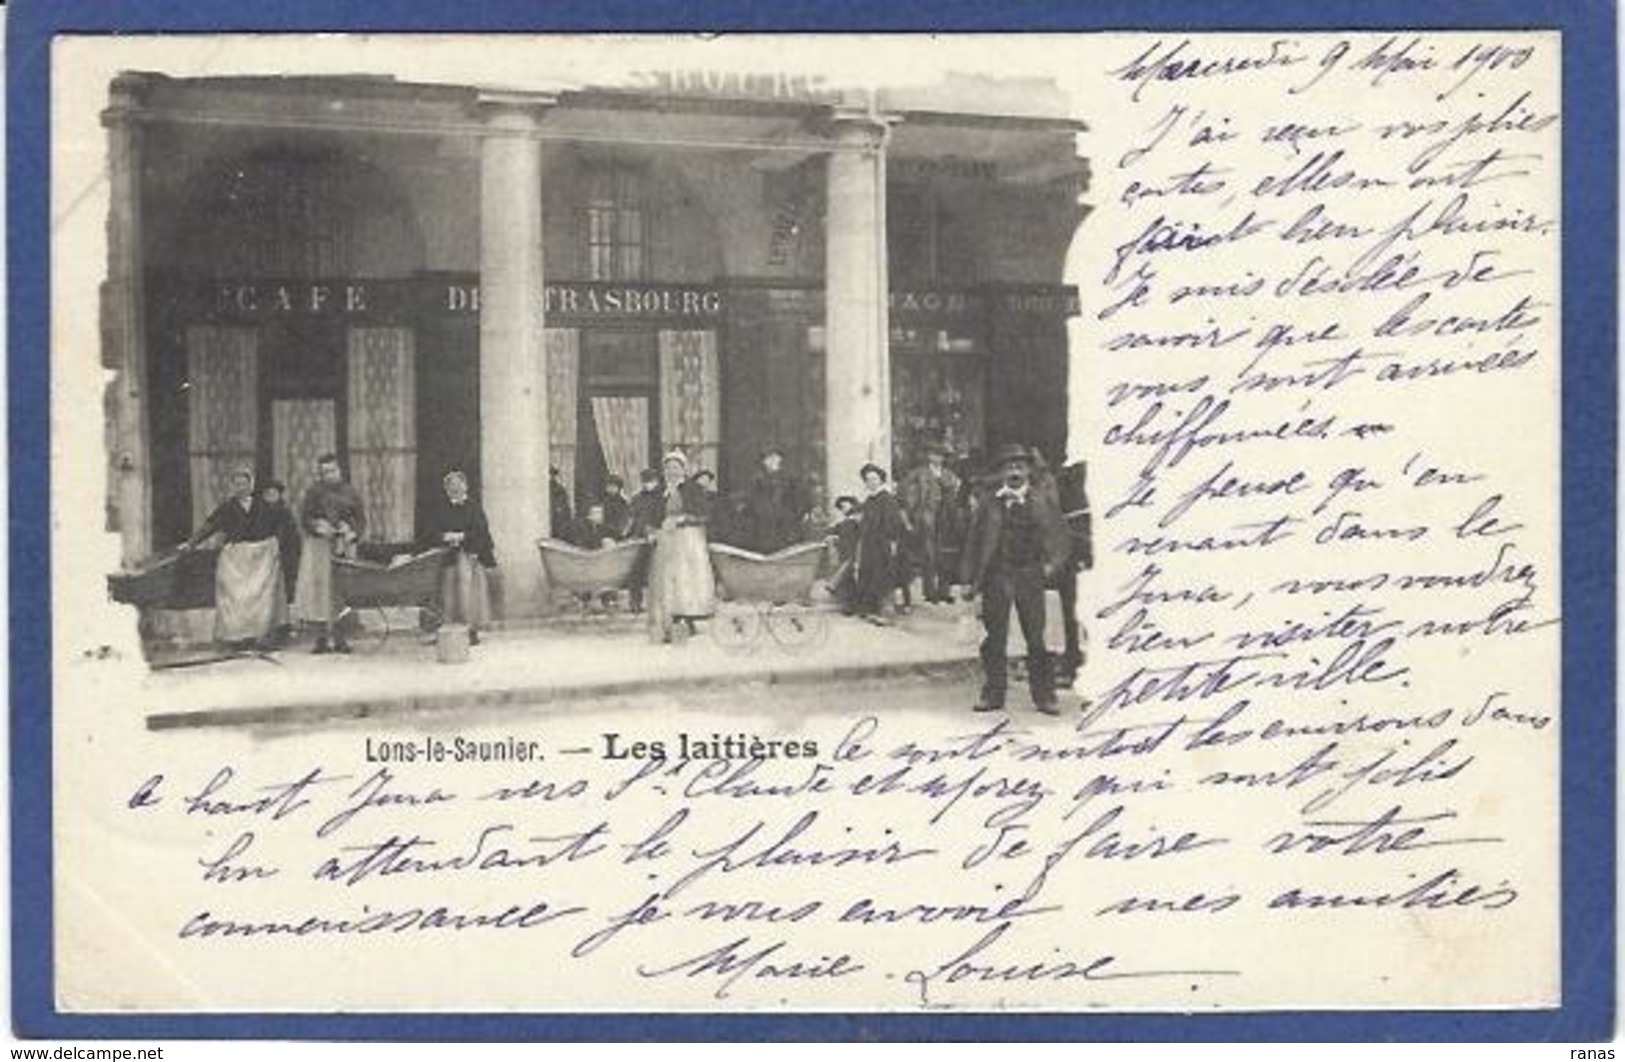 Mercredi 9 Mai 1900
J'ai reçu vos jolies
cartes, elles m'ont
fait bien plaisir.
Je suis désolée de
savoir que les cartes
vous sont arrivées
chiffonnées.
Je pense qu'en
venant dans le
Jura, vous voudrez
bien visiter notre
petite ville.
CAFE DE STRASBOURG
Lons-le-Saunier. — Les laitières
Ce sont surtout les environs dans
le haut Jura vers St Claude et Morez qui sont jolis
En attendant le plaisir de faire votre
connaissance je vous envoie mes amitiés
Marie-Louise
www.delcampe.net
ranas